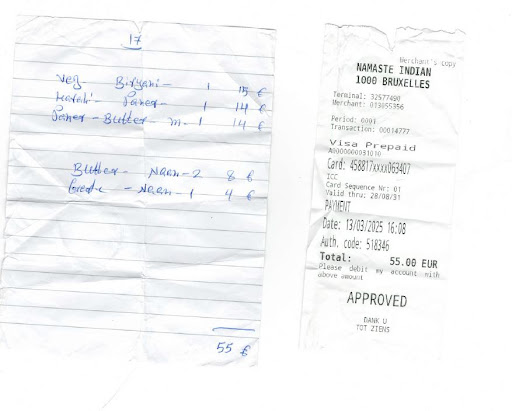 17
Veg - Biryani - 1 15 €
Karahi - Paner - 1 14 €
Paner - Butter - m - 1 14 €
Butter - Naan - 2 8 €
- Naan - 1 4 €
55 €
Merchant's copy
NAMASTE INDIAN
1000 BRUXELLES
Terminal: 32577490
Merchant: 013955356
Period: 6001
Transaction: 00014777
Visa Prepaid
A0000000031010
Card: 458817xxxx063407
ICC
Card Sequence Nr: 01
Valid thru: 28/08/31
PAYMENT
Date: 13/03/2025 16:08
Auth. code: 518346
Total: 55.00 EUR
Please debit my account with
above amount
APPROVED
DANK U
TOT ZIENS